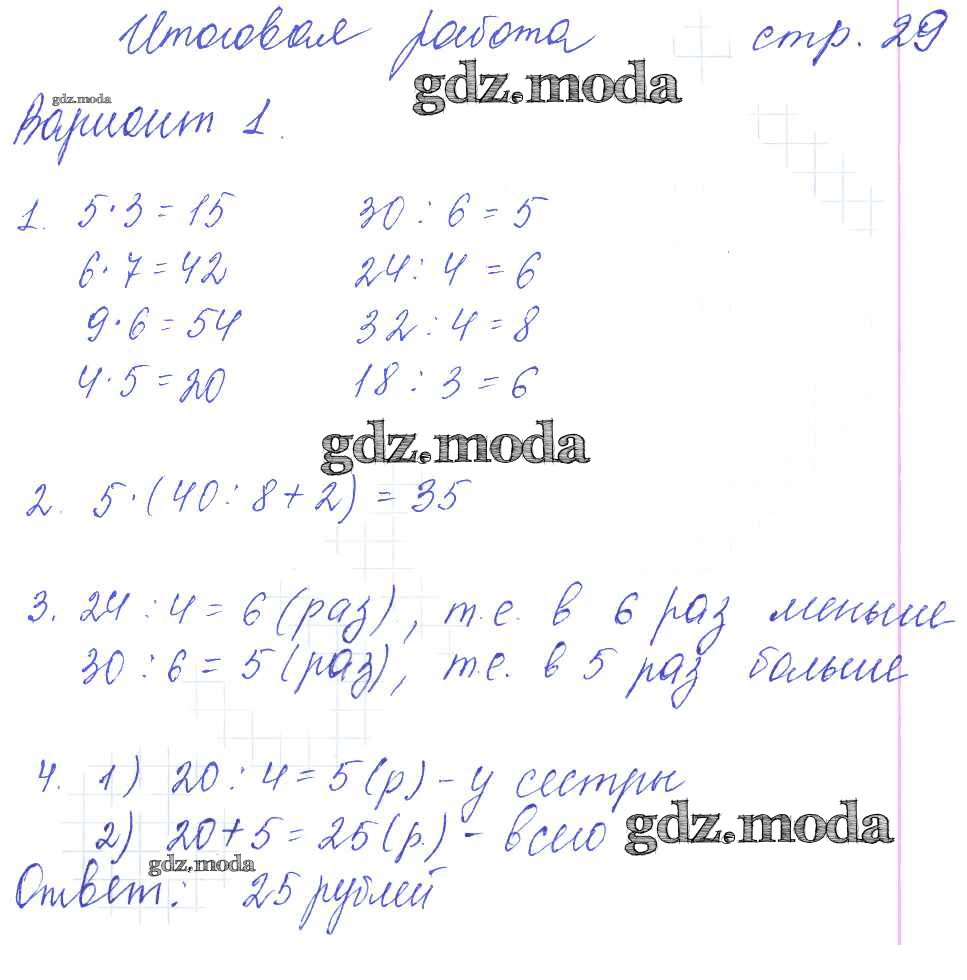 Итоговая работа стр. 29
gdz.moda
gdz.moda
Вариант 1.
1. 5·3=15 30:6=5
6·7=42 24:4=6
9·6=54 32:4=8
4·5=20 18:3=6
gdz.moda
2. 5·(40:8+2)=35
3. 24:4=6(раз), т.е. в 6 раз меньше
30:6=5(раз), т.е. в 5 раз больше
4. 1) 20:4=5(р)-у сестры
2) 20+5=25(р.)-всего
gdz.moda
gdz.moda
Ответ: 25 рублей